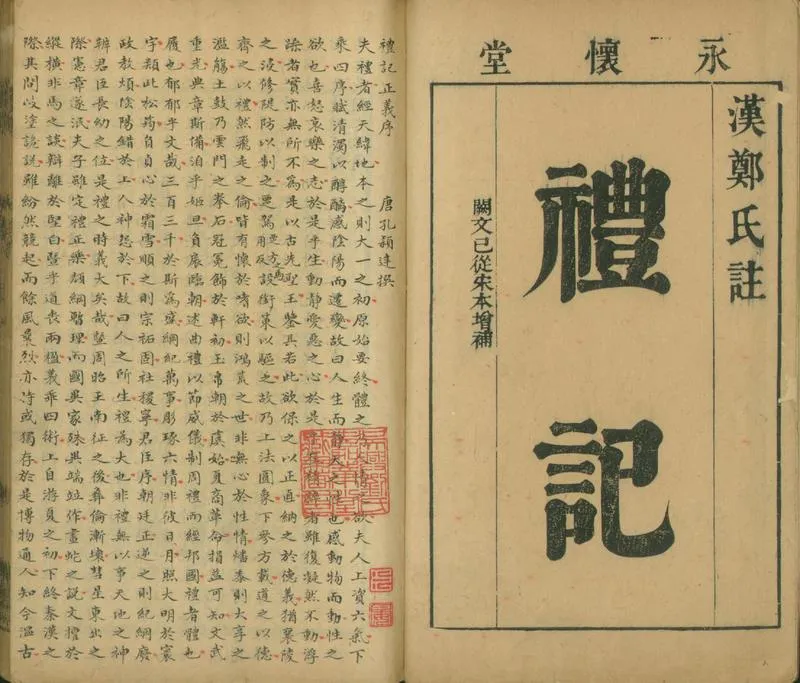 永懷堂
漢鄭氏註
禮記
闕文已從宋本增補
禮記正義序　唐孔穎達撰
夫禮者經天緯地本之則大一之初原始要終體之乃人情之欲夫人上資六氣下
乘四序賦清濁以醇醨感陰陽而遷變故曰人生而靜天之性也感動物而動性之
欲也喜怒哀樂之志於是乎生動靜愛惡之心於是乎在精粹者雖復凝然不動浮
躁者實亦無所不為是以古先聖王鑒其若此欲保之以正直納之於德義猶襄陵
之浸修隄防以制之覂駕方用反之馬設銜策以驅之故乃上法圓象下參方載道之以德
齊之以禮然飛走之倫皆有懷於嗜欲則鴻荒之世非無心於性情燔黍則大享之
濫觴土鼓乃雲門之拳石冠冕飾於軒初玉帛朝於虞始夏商革命損益可知文武
重光典章斯備洎乎姬旦負扆臨朝述曲禮以節威儀制周禮而經邦國禮者體也
履也郁郁乎文哉三百三千於斯為盛綱紀萬事彫琢六情非彼日月照大明於寰
宇類此松筠負貞心於霜雪順之則宗祏固社稷寧君臣序朝廷正逆之則紀綱廢
政教煩陰陽錯於上人神怨於下故曰人之所生禮為大也非禮無以事天地之神
辨君臣長幼之位是禮之時義大矣哉暨周昭王南征之後彝倫漸壞彗星東出之
際憲章遂泯夫子雖定禮正樂頹綱暫理而國異家殊異端並作畫蛇之說文擅於
縱橫非馬之談辯離於堅白暨乎道喪兩楹義乖四術上自游夏之初下終秦漢之
際其間岐塗詭說雖紛然競起而餘風曩烈亦時或獨存於是博物通人知今溫古